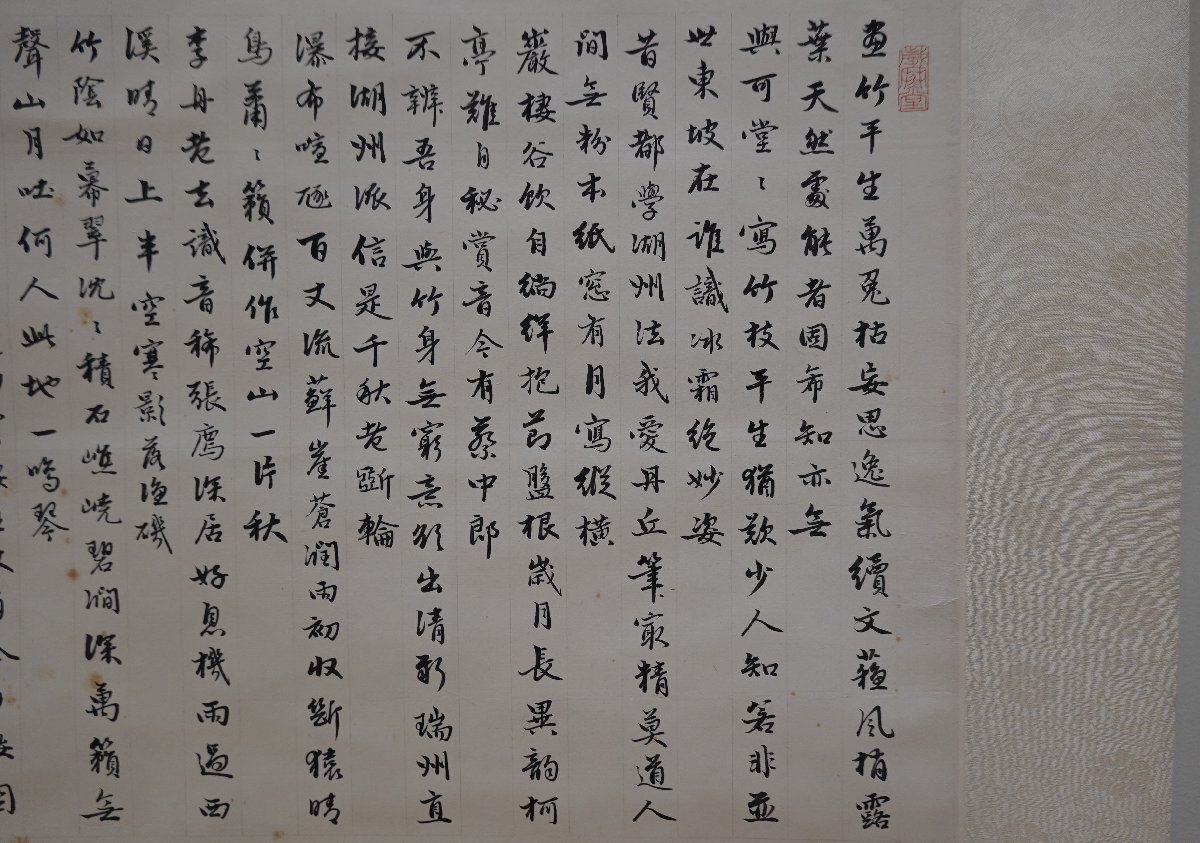 畫竹平生萬兔枯妄思逸氣續文蘓風梢露
葉天然處能者固希知亦無
與可堂〻寫竹枝平生猶歎少人知若非並
世東坡在誰識冰霜絶妙姿
昔賢都學湖州法我愛丹丘筆㝡精莫道人
間無粉本紙窓有月寫縱橫
巖棲谷飲自徜徉抱節盤根歲月長異韵柯
亭難自秘賞音今有蔡中郎
不辨吾身與竹身無窮意欲出清新瑞州直
接湖州派信是千秋老斲輪
瀑布喧豗百丈流蘚崖蒼潤雨初收斷猿晴
鳥蕭〻籟併作空山一片秋
李丹老去識音稀張廌深居好息機雨過西
溪晴日上半空寒影落漁磯
竹陰如幕翠沈〻積石嶕嶢碧澗深萬籟無
聲山月吐何人此地一鳴琴